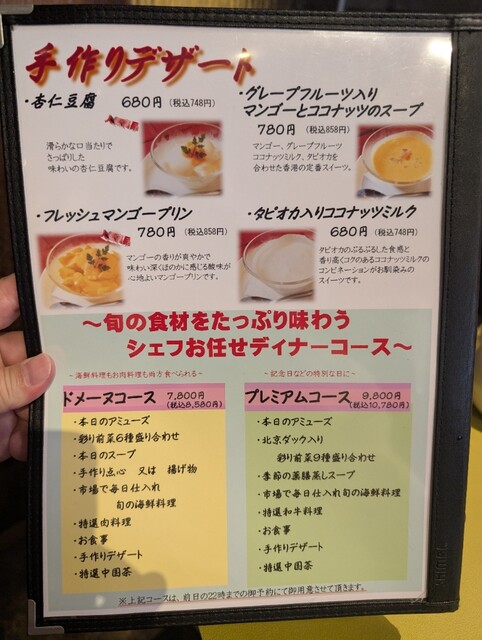 手作りデザート
・杏仁豆腐 680円(税込748円)
滑らかな口当たりで
さっぱりした
味わいの杏仁豆腐です。
・グレープフルーツ入り
マンゴーとココナッツのスープ
780円(税込858円)
マンゴー、グレープフルーツ
ココナッツミルク、タピオカを
合わせた香港の定番スイーツ。
・フレッシュマンゴープリン
780円(税込858円)
マンゴーの香りが爽やかで
味わい深くほのかに感じる酸味が
心地よいマンゴープリンです。
・タピオカ入りココナッツミルク
680円(税込748円)
タピオカのぷるぷるした食感と
香り高くコクのあるココナッツミルクの
コンビネーションがお馴染みの
スイーツです。
～旬の食材をたっぷり味わう
シェフお任せディナーコース～
～海鮮料理もお肉料理も両方食べられる～
ドメーヌコース 7,800円
(税込8,580円)
・本日のアミューズ
・彩り前菜6種盛り合わせ
・本日のスープ
・手作り点心 又は 揚げ物
・市場で毎日仕入れ
旬の海鮮料理
・特選肉料理
・お食事
・手作りデザート
・特選中国茶
～記念日などの特別な日に～
プレミアムコース 9,800円
(税込10,780円)
・本日のアミューズ
・北京ダック入り
彩り前菜9種盛り合わせ
・季節の薬膳蒸しスープ
・市場で毎日仕入れ旬の海鮮料理
・特選和牛料理
・お食事
・手作りデザート
・特選中国茶
※上記コースは、前日の22時までの御予約にて御用意させて頂きます。